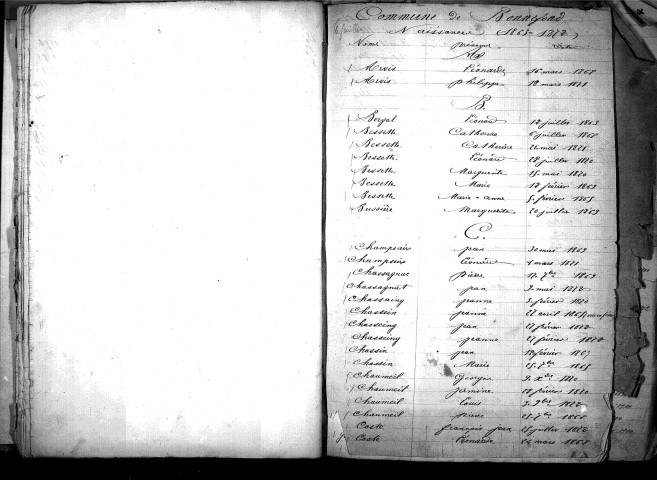 Commune de Bonnefond
Naissances (1863-1872)
Noms prénoms
A
Arvis Léonarde 26 mars 1868
Arvis philippe 12 mars 1871
B.
Léonard 12 juillet 1863
Bessette Catherine 6 juillet
Bessette Catherine mai
Bessette Léonard 28 juillet 1870
Bessette Marguerite 15 mai 1870
Bessette Marie 12 février 1869
Bessette Marie-anne 5 février 1865
Bussière Marguerite 20 juillet 1869
C.
Champseix jean 30 mai 1869
Champseix Léonard 6 mars 1871
Chassagnac pierre 17 7bre 1869
Chassagnat jean 2 mai 1872
Chassaing jeanne 3 février 1870
Chassein jeanne 22 avril
Chasseing jean 27 février 1872
Chasseing jeanne 27 février 1872
Chassin jean février 1867
Chassin Marie 25 7bre 1865
Chaumeil Georges 2 Xbre 1870
Chaumeil jermine février 1870
Chaumeil Louis 3 9bre 1872
Chaumeil pierre 25 7bre
Coste françois jean juillet 1872
Coste Léonarde 22 mars 1868